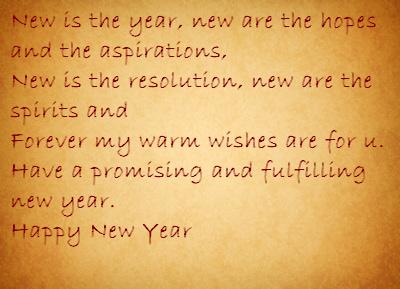 New is the year, new are the hopes
and the aspirations,
New is the resolution, new are the
spirits and
Forever my warm wishes are for u.
Have a promising and fulfilling
new year.
Happy New Year